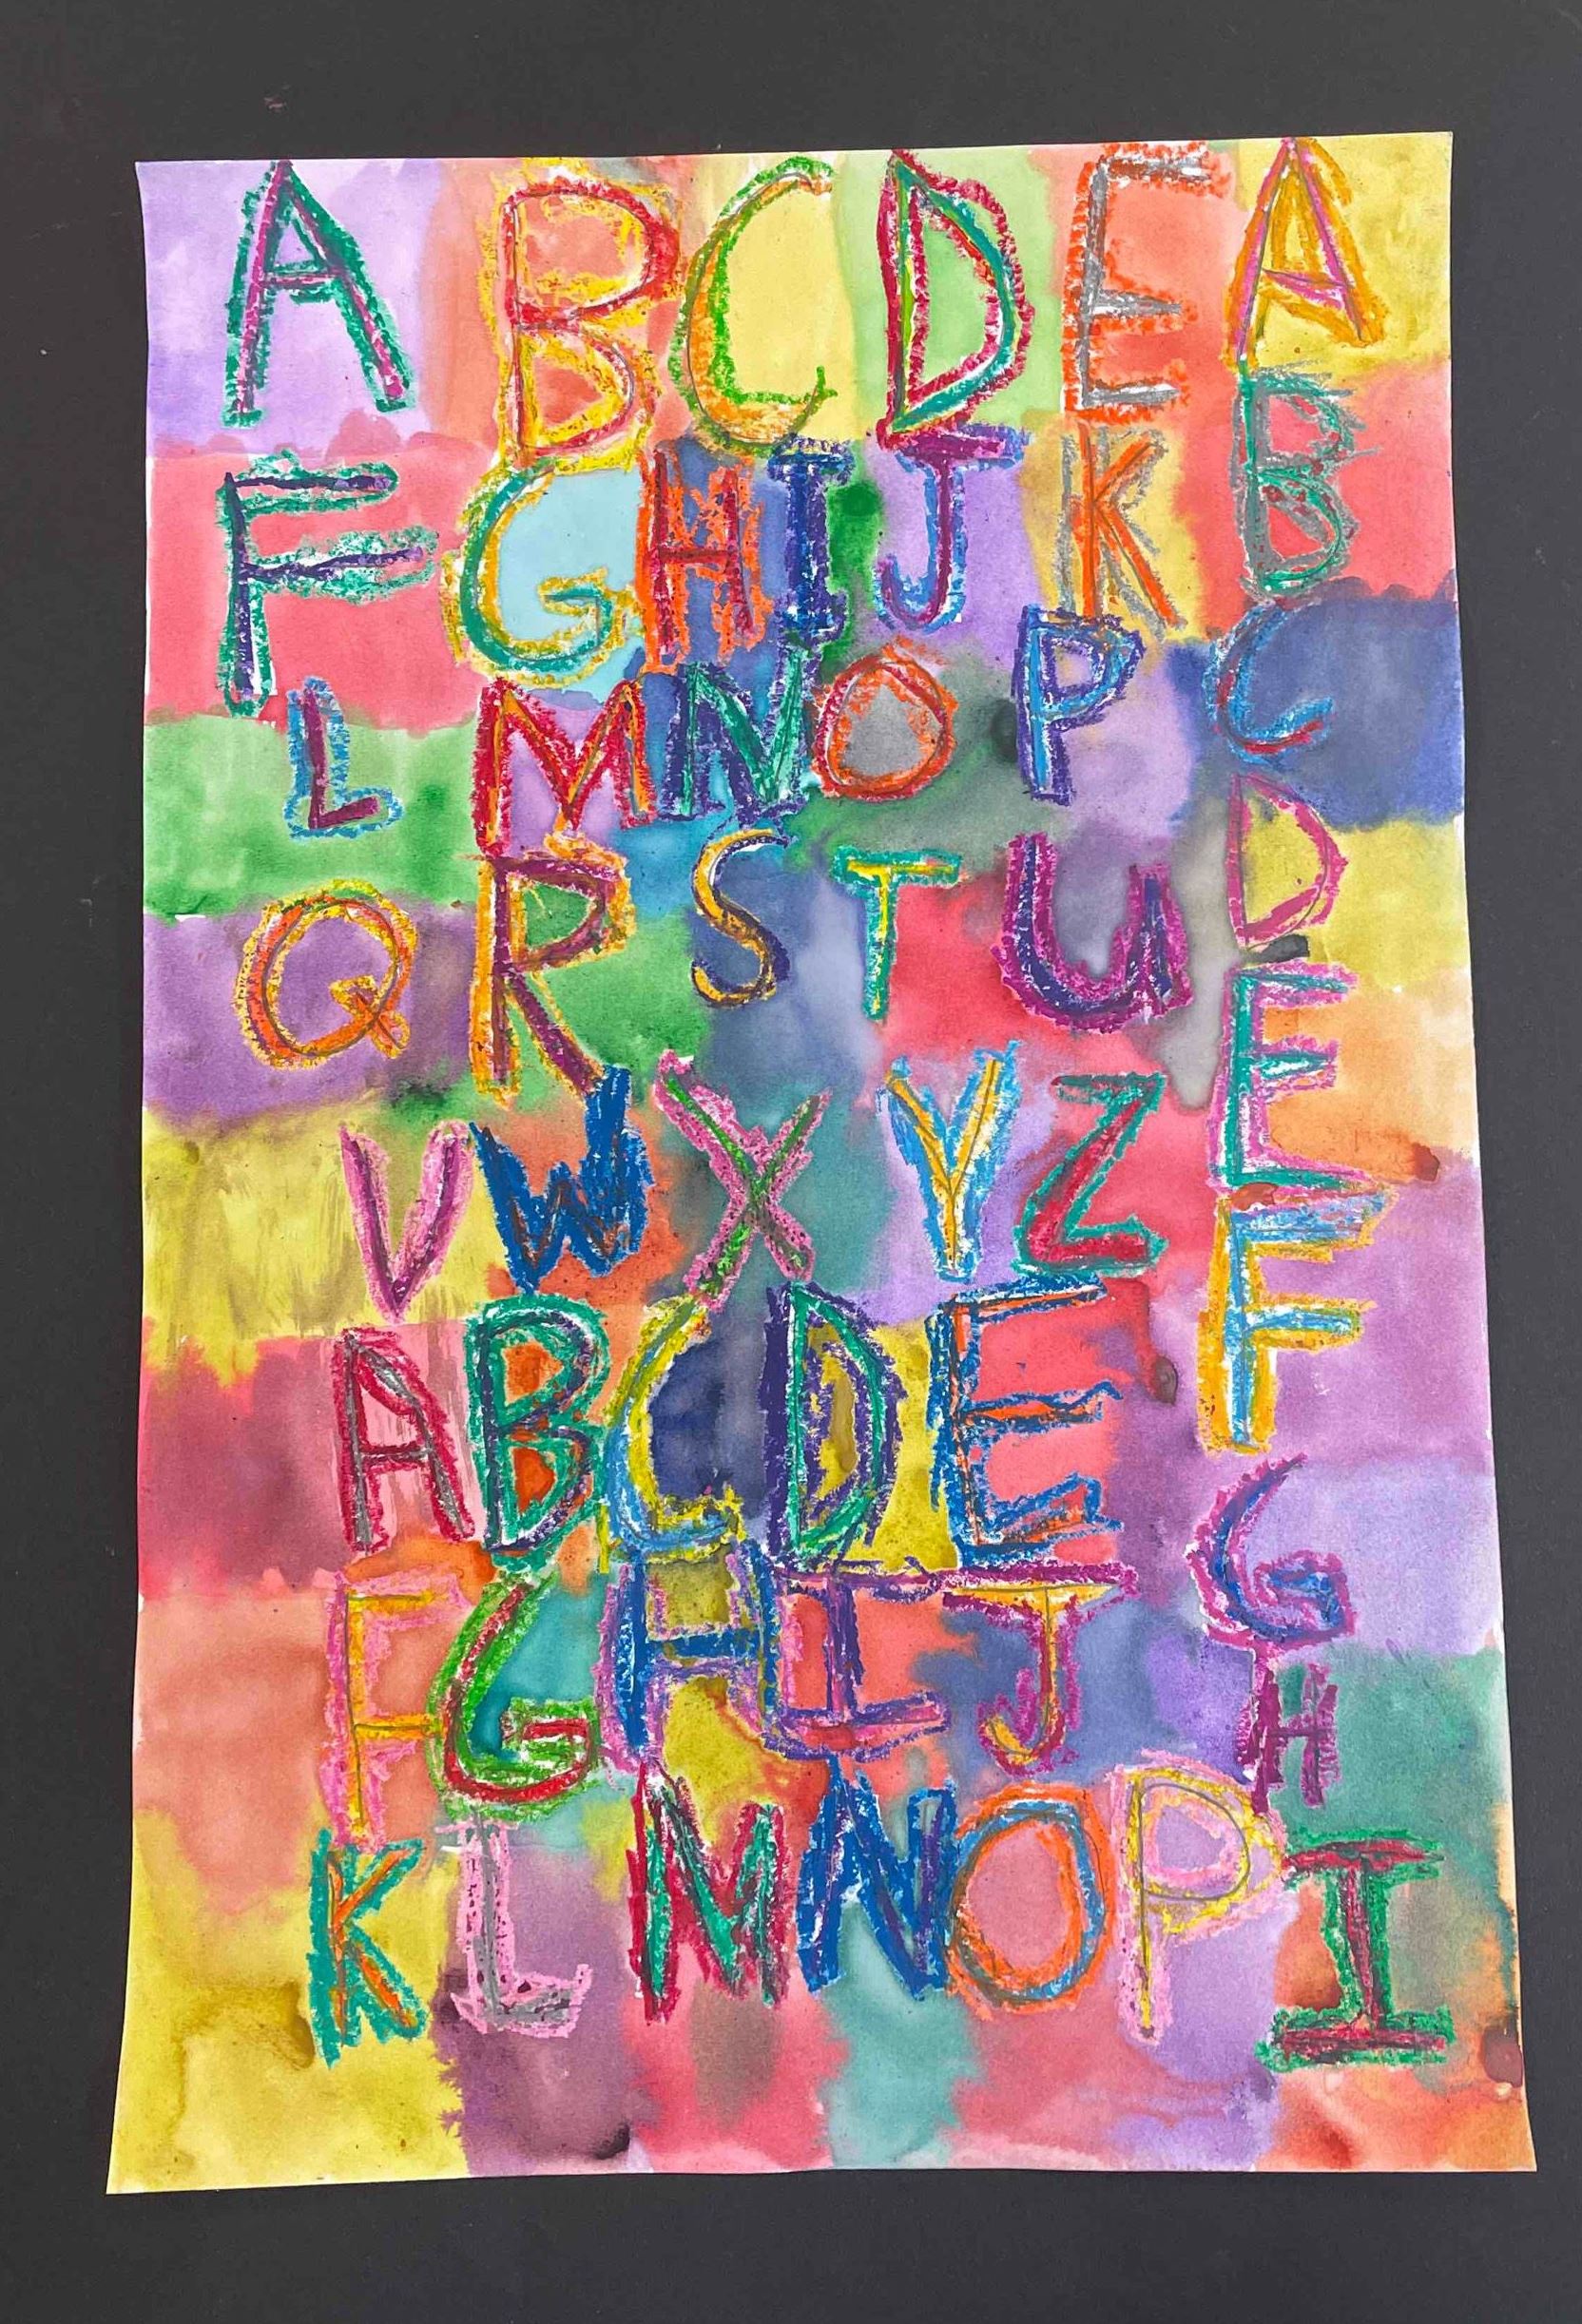 A B C D E A
F G H I J K B
L M N O P C
Q R S T U D
E
V W X Y Z
F
A B C D E
F G H I J G
H
K L M N O P I